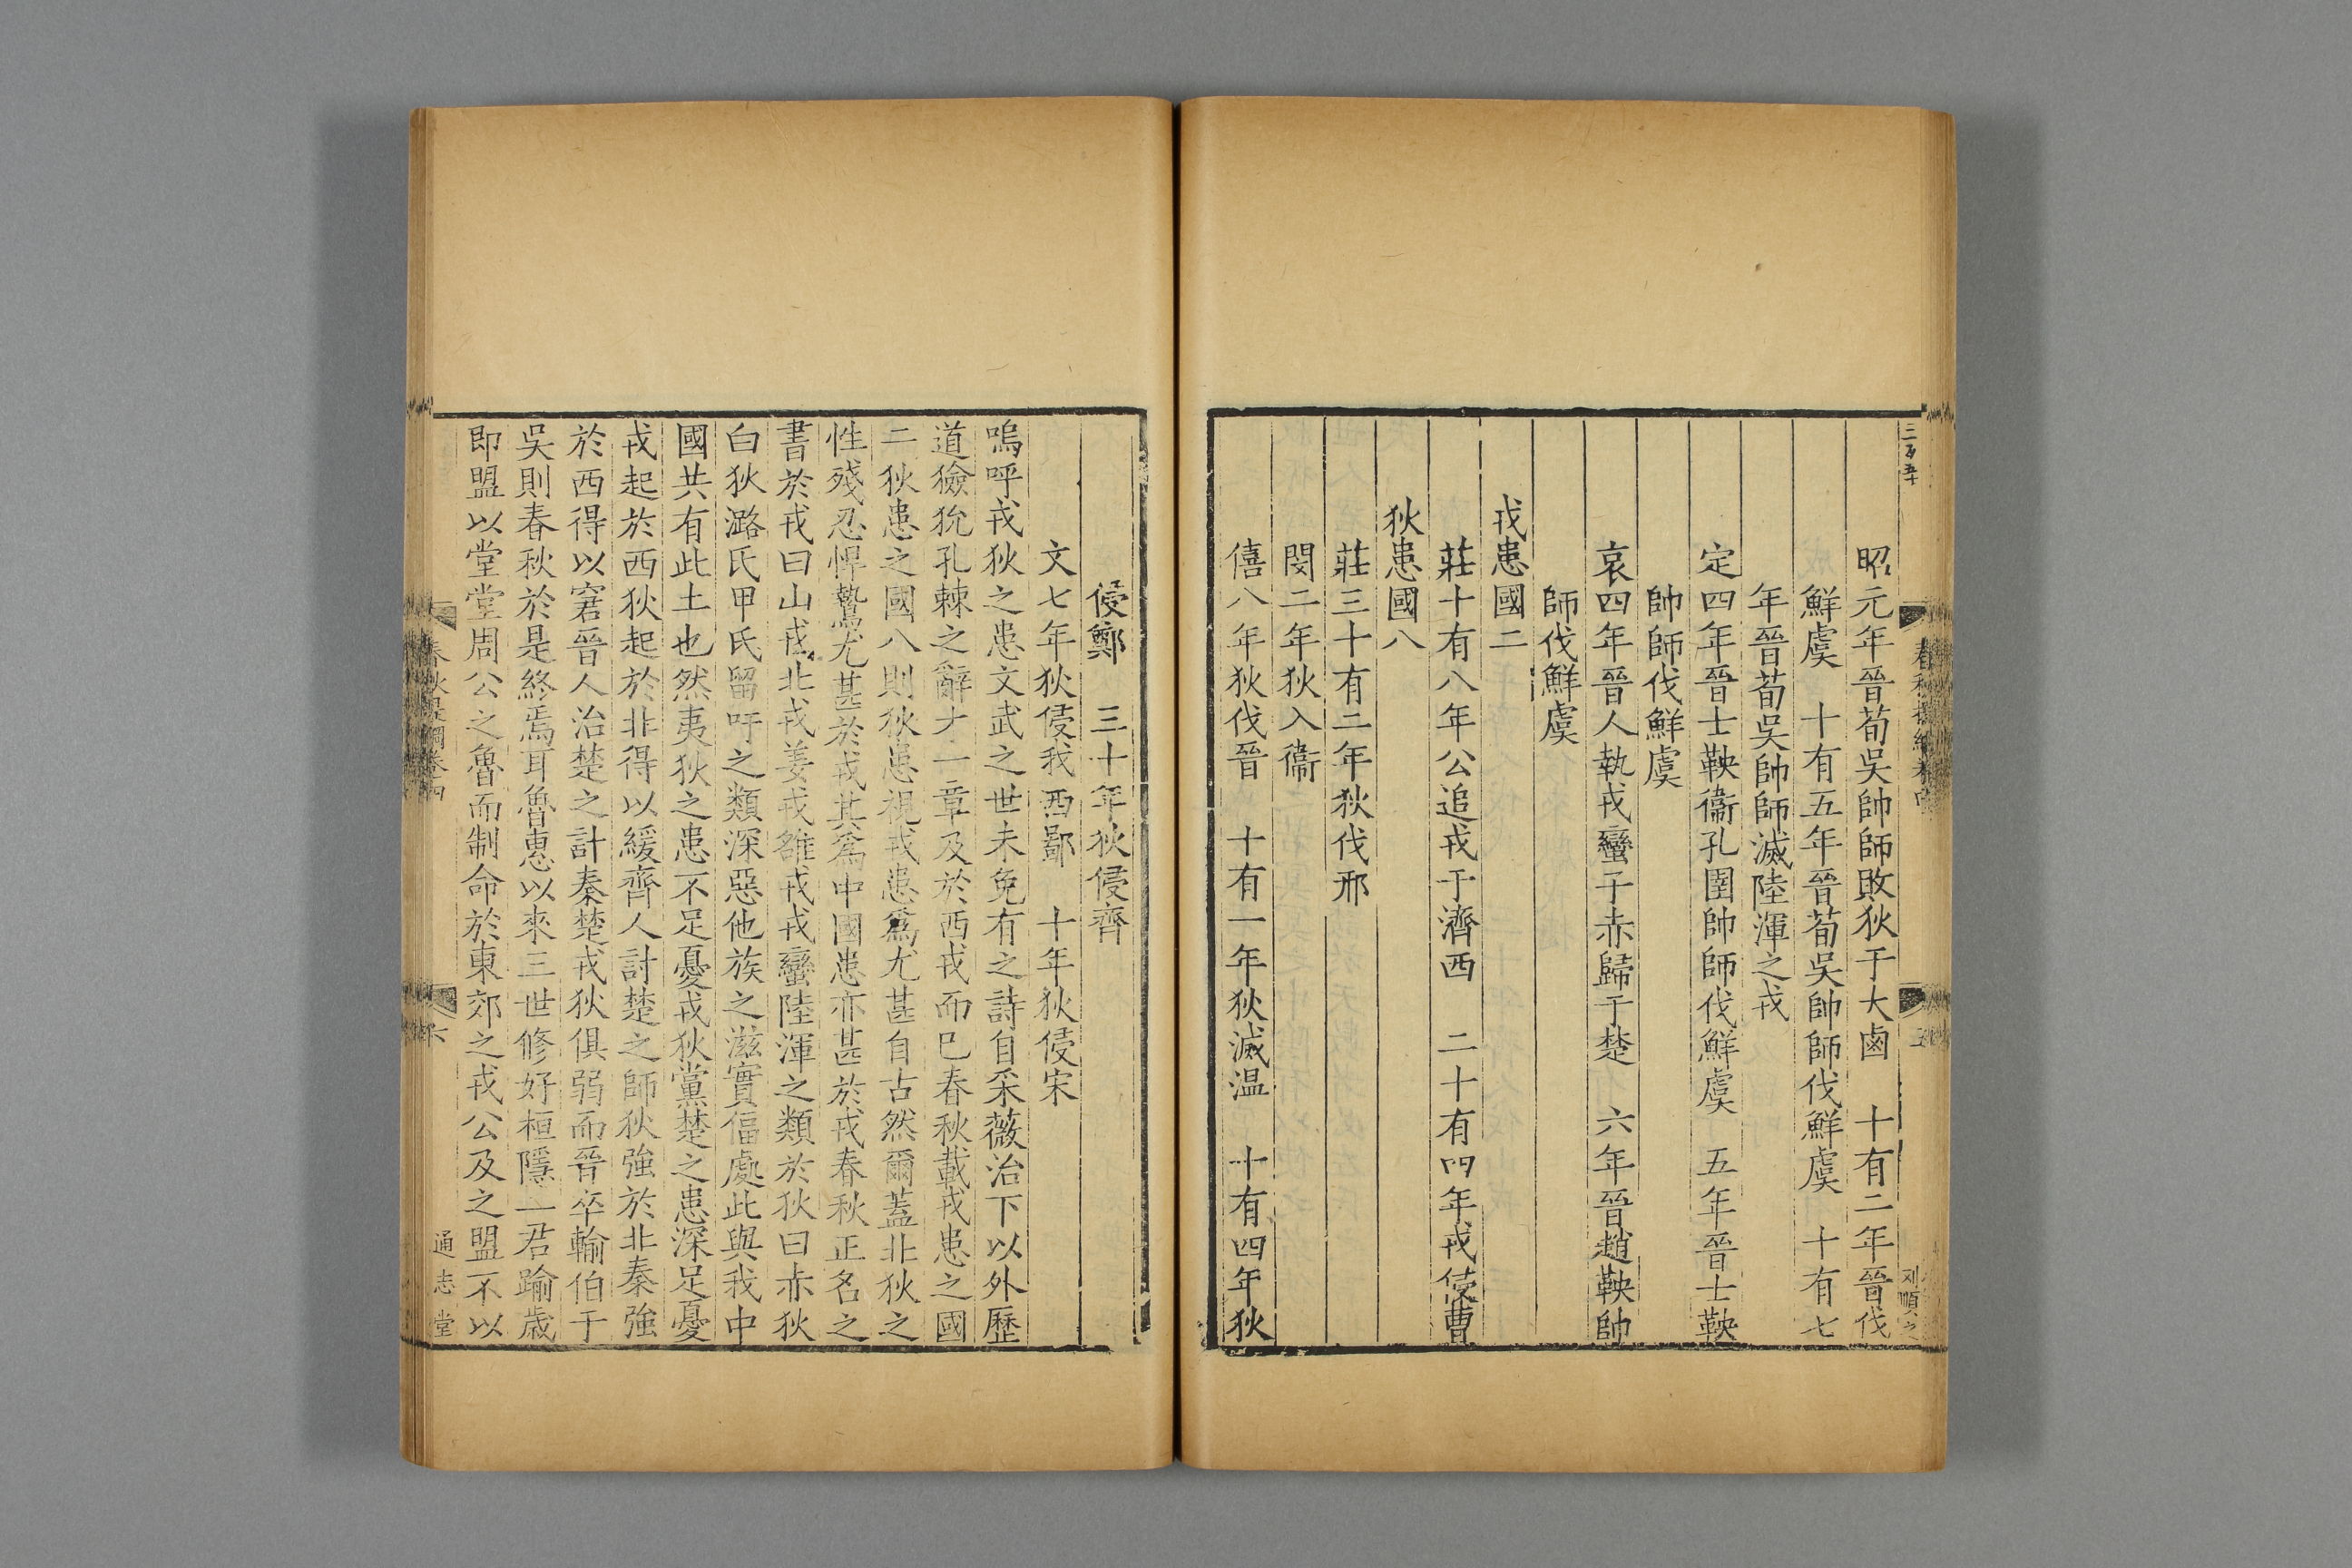 三百五十
昭元年晉荀吳帥師敗狄于大鹵　十有二年晉伐
鮮虞　十有五年晉荀吳帥師伐鮮虞　十有七
年晉荀吳帥師滅陸渾之戎
定四年晉士鞅衞孔圉帥師伐鮮虞　五年晉士鞅
帥師伐鮮虞
哀四年晉人執戎蠻子赤歸于楚　六年晉趙鞅帥
師伐鮮虞
戎患國二
莊十有八年公追戎于濟西　二十有四年戎侵曹
狄患國八
莊三十有二年狄伐邢
閔二年狄入衞
僖八年狄伐晉　十有一年狄滅温　十有四年狄
侵鄭　三十年狄侵齊
文七年狄侵我西鄙　十年狄侵宋
嗚呼戎狄之患文武之世未免有之詩自采薇治下以外歷
道獫狁孔棘之辭才一章及於西戎而已春秋載戎患之國
二狄患之國八則狄患視戎患爲尤甚自古然爾蓋北狄之
性殘忍悍鷙尤甚於戎其爲中國患亦甚於戎春秋正名之
書於戎曰山戎北戎姜戎雒戎戎蠻陸渾之類於狄曰赤狄
白狄潞氏甲氏留吁之類深惡他族之滋實偪處此與我中
國共有此土也然夷狄之患不足憂戎狄黨楚之患深足憂
戎起於西狄起於北得以緩齊人討楚之師狄強於北秦強
於西得以窘晉人治楚之計秦楚戎狄俱弱而晉卒輸伯于
吳則春秋於是終焉耳魯惠以來三世修好桓隱二君踰歲
即盟以堂堂周公之魯而制命於東郊之戎公及之盟不以
春秋提綱卷四
六
通志堂